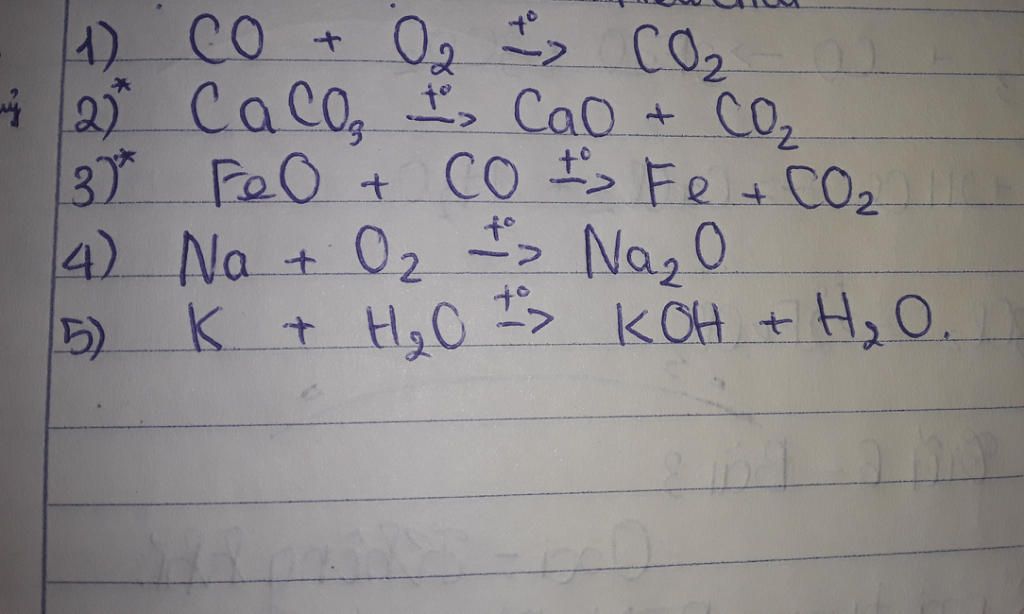 1) CO + O₂ t° → CO₂
2)* CaCO₃ t° → CaO + CO₂
3)* FeO + CO t° → Fe + CO₂
4) Na + O₂ t° → Na₂O
5) K + H₂O t° → KOH + H₂O.